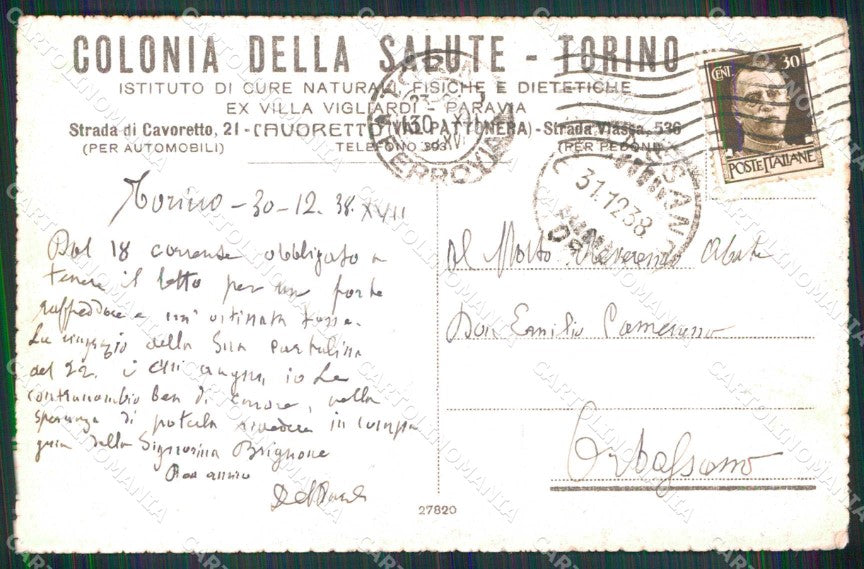 COLONIA DELLA SALUTE - TORINO
ISTITUTO DI CURE NATURALI, FISICHE E DIETETICHE
EX VILLA VIGLIARDI - PARAVIA
Strada di Cavoretto, 21 - CAVORETTO (VAL PATTONERA) - Strada Viassa, 536
(PER AUTOMOBILI) TELEFONO (PER PEDONI)
CENT. 30
POSTE ITALIANE
TORINO
FERROVIA
30 XII
XVI
31.12.38
Torino - 30-12. 38. XVII
Dal 18 corrente obbligato a
tenere il letto per un forte
raffreddore e un' ostinata tosse.
La ringrazio della Sua cartolina
del 22. e auguri, io Le
contraccambio ben di cuore, nella
speranza di poterla rivedere in compa
gnia della Signorina Brignone
Al Molto Reverendo Abate
Don Emilio Camerano
Orbassano
27820
CARTOLINOMANIA